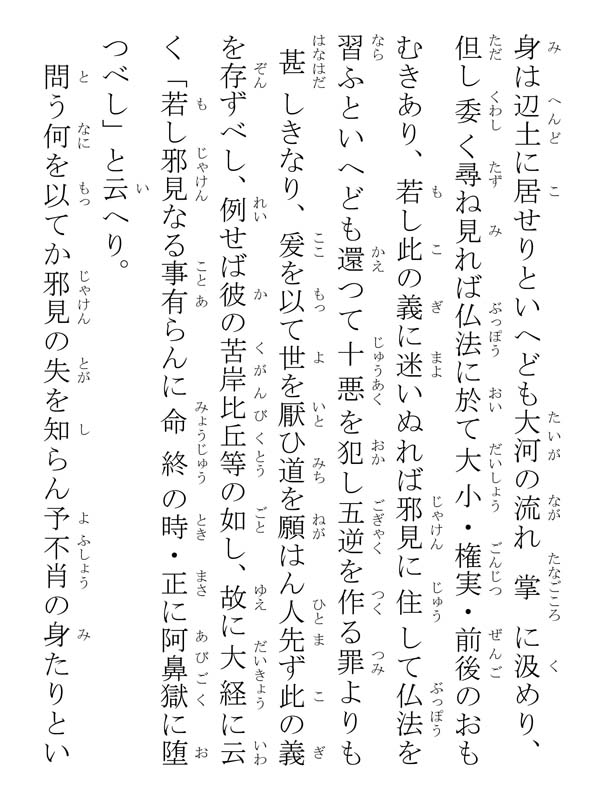 身は辺土に居せりといへども大河の流れ掌に汲めり、
但し委く尋ね見れば仏法に於て大小・権実・前後のおも
むきあり、若し此の義に迷いぬれば邪見に住して仏法を
習ふといへども還つて十悪を犯し五逆を作る罪よりも
甚しきなり、爰を以て世を厭ひ道を願はん人先ず此の義
を存ずべし、例せば彼の苦岸比丘等の如し、故に大経に云
く「若し邪見なる事有らんに命終の時・正に阿鼻獄に堕
つべし」と云へり。
問う何を以てか邪見の失を知らん予不肖の身たりとい